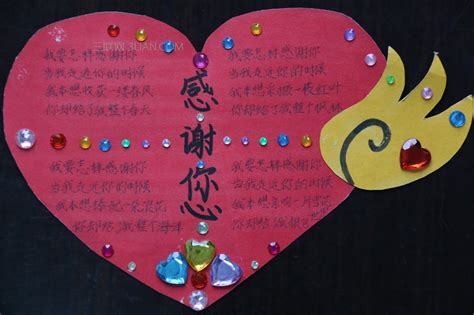 三联网 3LIAN.COM
感谢您
我要怎样感谢你
当我走近你的时候
我本想收获一缕春风
你却给了我整个春天
我要怎样感谢你
当我走近你的时候
我本想采撷一枚红叶
你却给了我整个枫林
我要怎样感谢你
当我走近你的时候
我本想捧起一朵浪花
你却给了我整个海洋
我要怎样感谢你
当我走近你的时候
我本想亲吻一片雪花
你却给了我银色世界